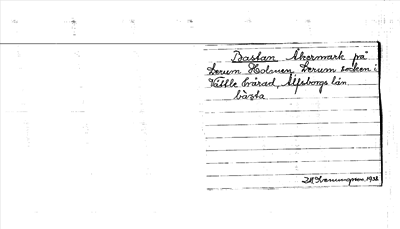 Bastan Åkermark på
Lerum Holmen, Lerum socken i
Vättle härad, Älfsborgs län.
bàsta
1938